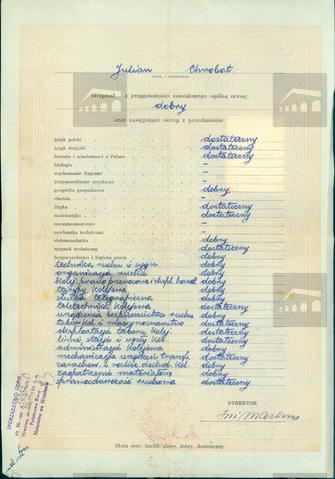 Julian Chrobot
(imię i nazwisko)
otrzymał z przygotowania zawodowego ogólną ocenę:
dobry
oraz następujące oceny z przedmiotów:
język polski dostateczny
język rosyjski dostateczny
historia i wiadomości o Polsce dostateczny
biologia —
wychowanie fizyczne —
przysposobienie wojskowe —
geografia gospodarcza dobry
chemia —
fizyka dostateczny
matematyka dostateczny
materiałoznawstwo —
mechanika techniczna —
elektrotechnika dobry
rysunek techniczny dostateczny
bezpieczeństwo i higiena pracy dobry
technika ruchu i sygn. dobry
organizacja ruchu dobry
kolej. prawo przewozowe i ekspl. handl. dobry
taryfy kolejowe dobry
służba telegraficzna dobry
teletechnika kolejowa dostateczny
urządzenia bezpieczeństwa ruchu dobry
tabor kol. i maszynoznawstwo dostateczny
eksploatacja taboru kolej. dobry
linie, stacje i węzły kol. dostateczny
administracja kolejowa dobry
mechanizacja urządzeń transp. dobry
rachunk. kol. dobry
zaopatrzenie materiałowe dobry
sprawozdawczość ruchowa dobry
DYREKTOR
Skala ocen: bardzo dobry, dobry, dostateczny.